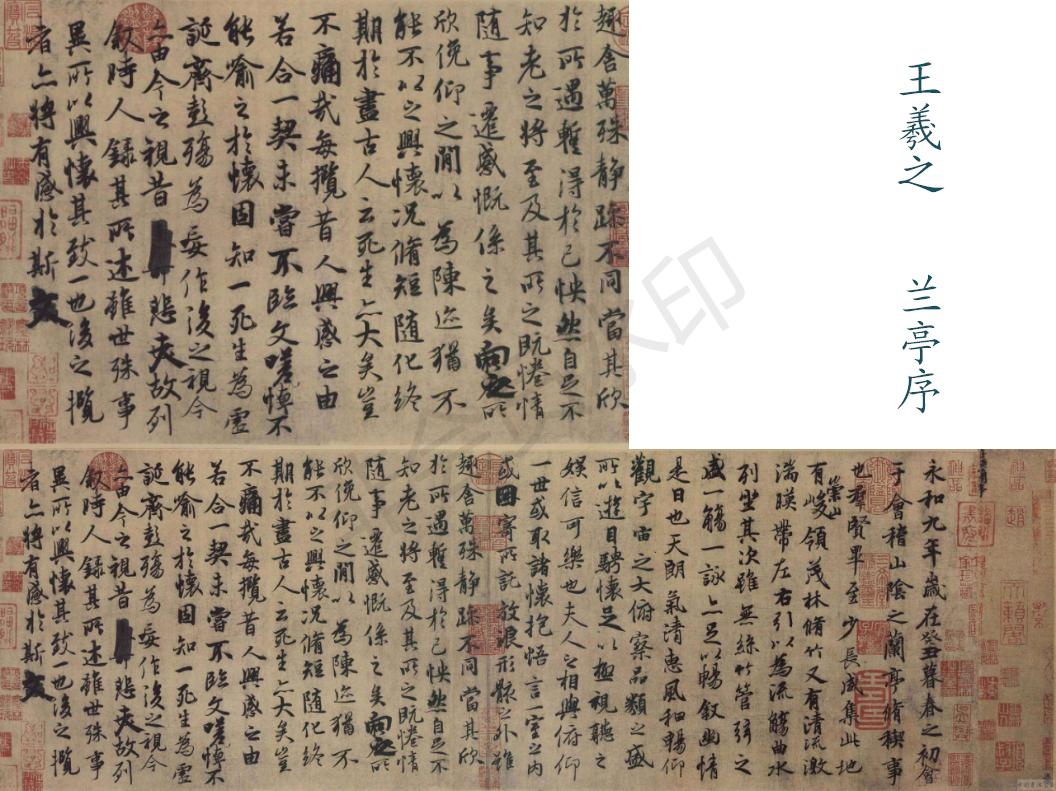 趣舍萬殊静躁不同當其欣
於所遇暫得於己怏然自足不
知老之將至及其所之既惓情
随事遷感慨係之矣向之所
欣俛仰之閒以為陳迹猶不
能不以之興懷况脩短随化終
期於盡古人云死生亦大矣豈
不痛哉每攬昔人興感之由
若合一契未嘗不臨文嗟悼不
能喻之於懷固知一死生為虛
誕齊彭殤為妄作後之視今
亦由今之視昔悲夫故列
叙時人録其所述雖世殊事
異所以興懷其致一也後之攬
者亦將有感於斯文
王羲之 兰亭序
永和九年歲在癸丑暮春之初會
于會稽山陰之蘭亭脩稧事
也羣賢畢至少長咸集此地
有崇山峻領茂林脩竹又有清流激
湍暎帶左右引以為流觴曲水
列坐其次雖無絲竹管弦之
盛一觴一詠亦足以暢叙幽情
是日也天朗氣清惠風和暢仰
觀宇宙之大俯察品類之盛
所以遊目騁懷足以極視聽之
娛信可樂也夫人之相與俯仰
一世或取諸懷抱悟言一室之內
或因寄所託放浪形骸之外雖
趣舍萬殊静躁不同當其欣
於所遇暫得於己怏然自足不
知老之將至及其所之既惓情
随事遷感慨係之矣向之所
欣俛仰之閒以為陳迹猶不
能不以之興懷况脩短随化終
期於盡古人云死生亦大矣豈
不痛哉每攬昔人興感之由
若合一契未嘗不臨文嗟悼不
能喻之於懷固知一死生為虛
誕齊彭殤為妄作後之視今
亦由今之視昔悲夫故列
叙時人録其所述雖世殊事
異所以興懷其致一也後之攬
者亦將有感於斯文